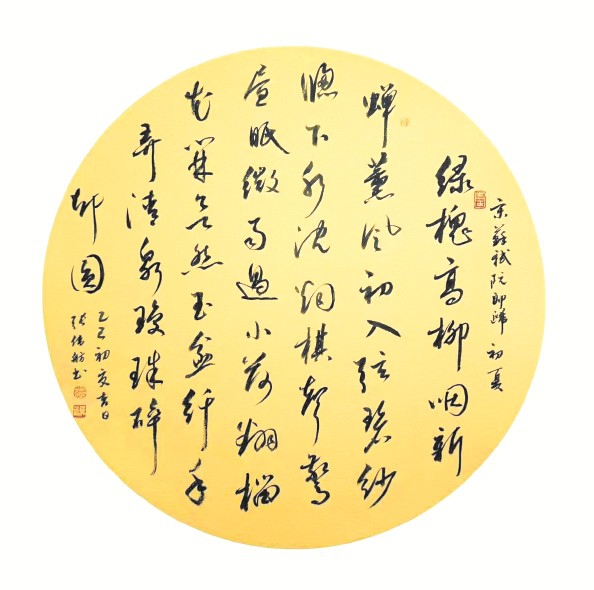 宋蘇軾阮郎歸 初夏
绿槐高柳咽新
蟬薰风初入弦碧纱
牕下水沈烟棋聲驚
昼眠微雨過小荷翻榴
花开欲然玉盆纤手
弄清泉瓊珠碎
却圆
乙巳初夏吉日